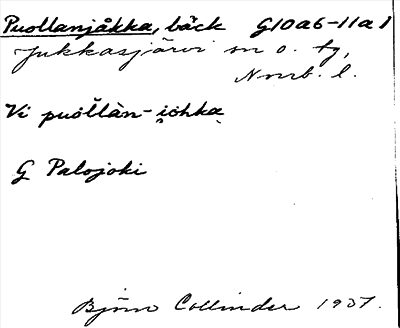 Puollanjåkka, bäck G10a6-11a1
Jukkasjärvi sn o. tg,
Nrrb. l.
Vi puŏllàn-
G Palojoki
Björn Collinder 1937.